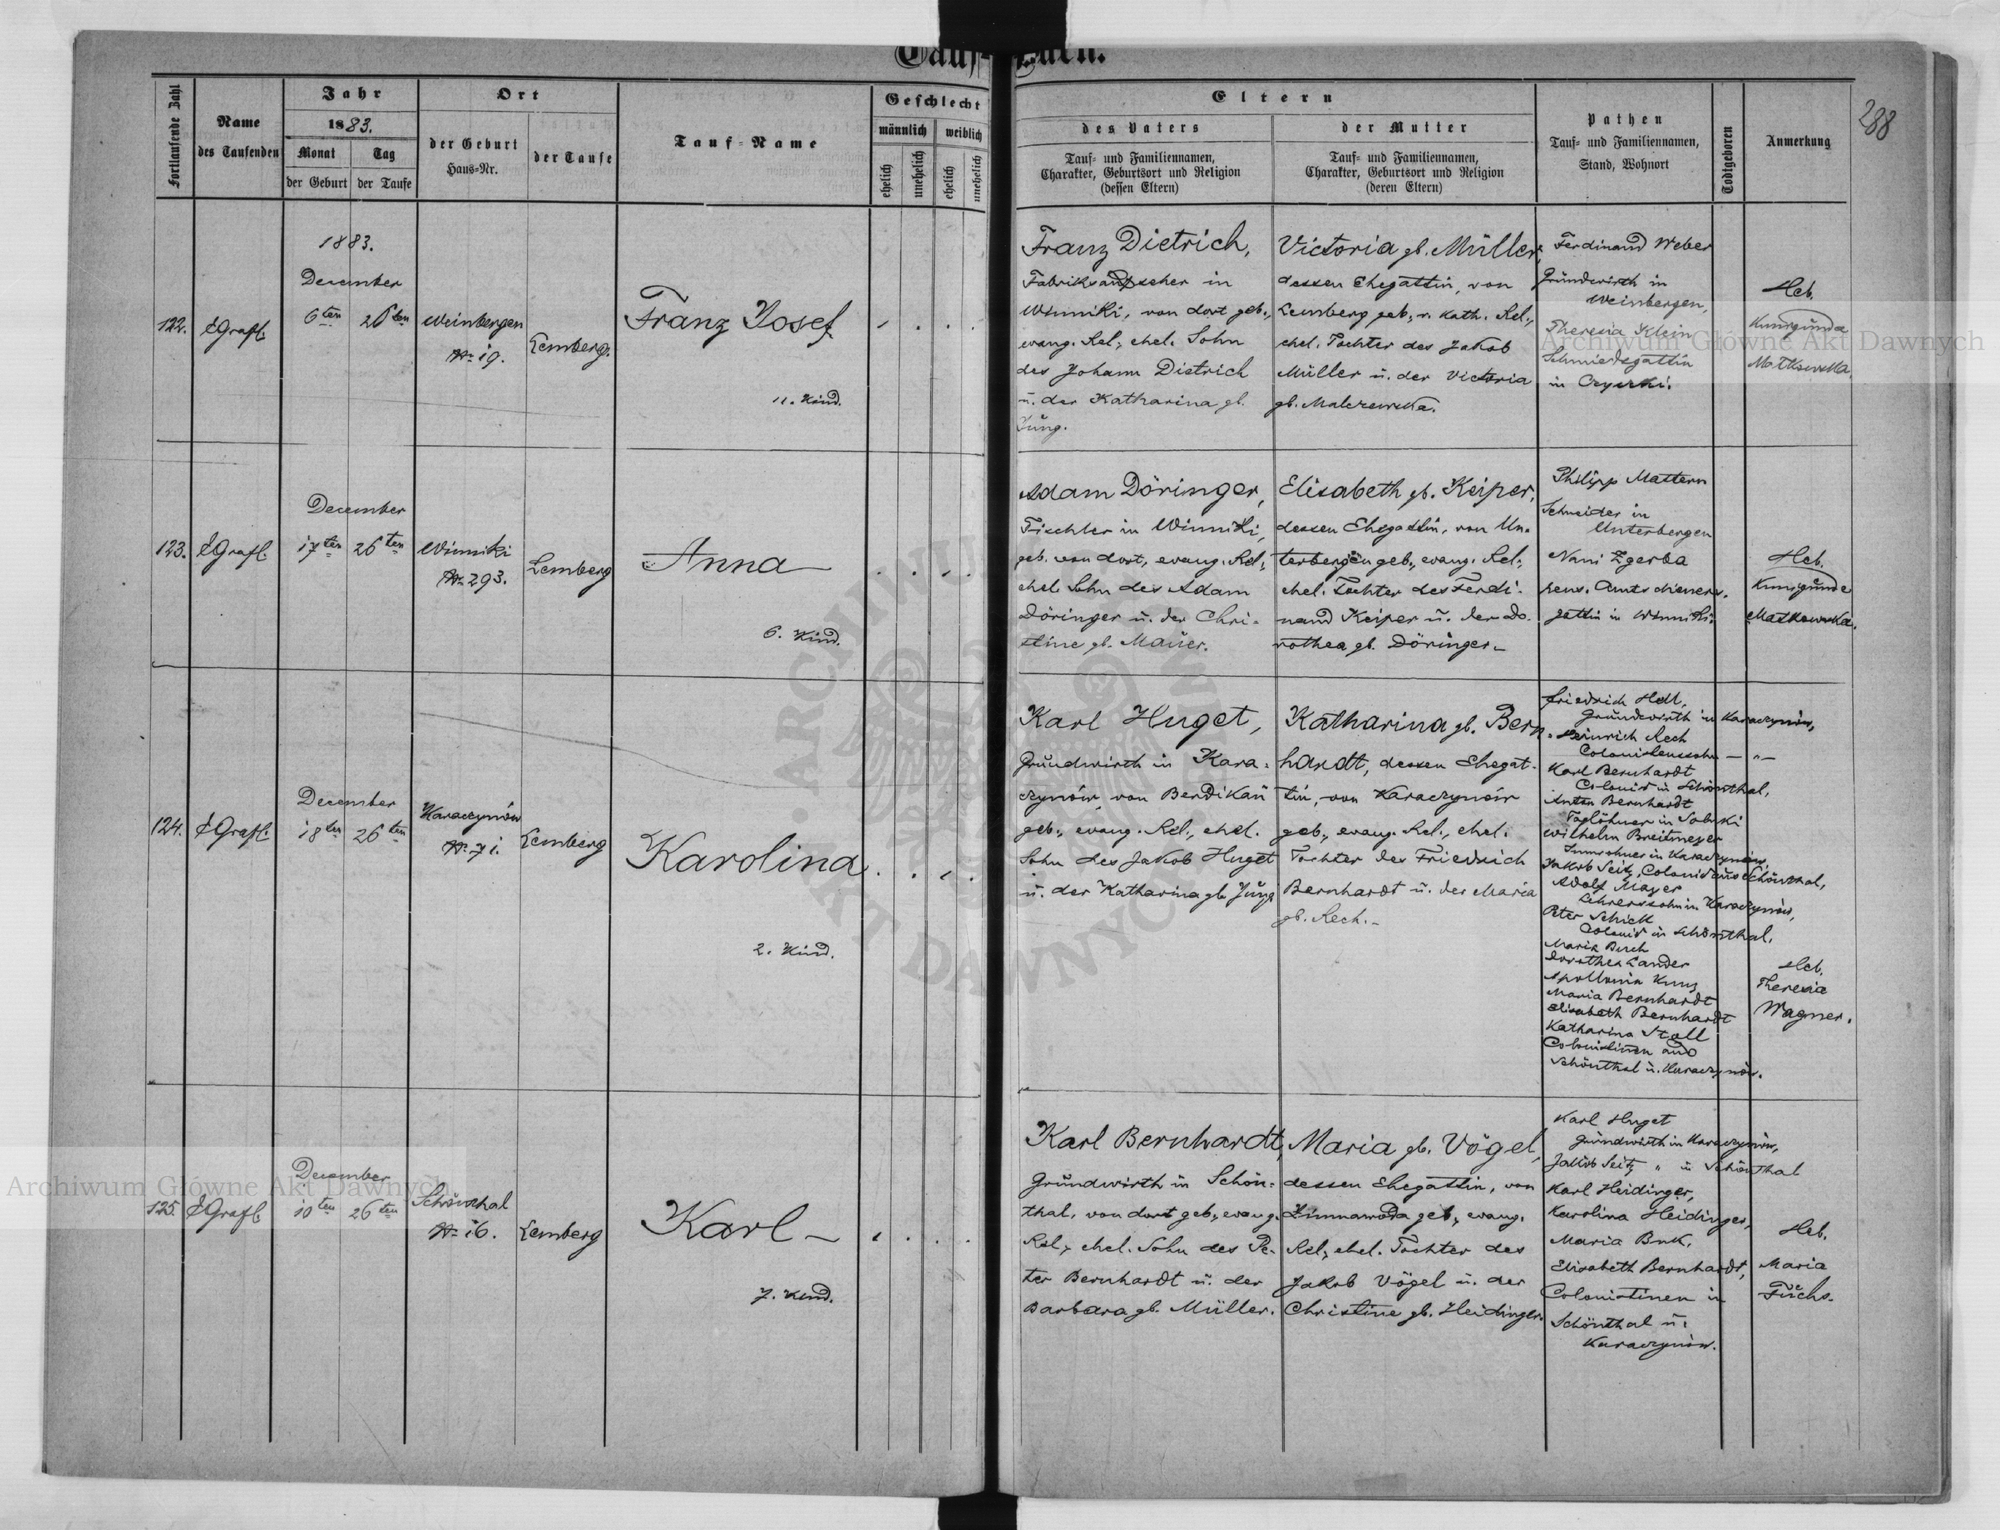 Tauf-
Fortlaufende Zahl
Name
des Taufenden
Jahr
1883.
Monat
Tag
der Geburt
der Taufe
Ort
der Geburt
Haus-Nr.
der Taufe
Tauf-Name
Geschlecht
männlich
weiblich
ehelich
unehelich
ehelich
unehelich
Eltern
des Vaters
Tauf- und Familiennamen,
Charakter, Geburtsort und Religion
(dessen Eltern)
der Mutter
Tauf- und Familiennamen,
Charakter, Geburtsort und Religion
(deren Eltern)
Pathen
Tauf- und Familiennamen,
Stand, Wohnort
Todtgeboren
Anmerkung
288
122.
Grafl.
1883.
December
6ten
26ten
Weinbergen
Nr. 19.
Lemberg.
Franz Josef
11. Kind.
Franz Dietrich,
Fabriksaufseher in
Winniki, von dort geb.,
evang. Rel., ehel. Sohn
des Johann Dietrich
u. der Katharina gb.
Jung.
Victoria gb. Müller,
dessen Ehegattin, von
Lemberg geb., r. kath. Rel.,
ehel. Tochter des Jakob
Müller u. der Victoria
gb. Malczewska.
Ferdinand Weber
Grundwirth in
Weinbergen,
Theresia Klein
Schmiedsgattin
in Czyszki.
Heb.
Kunigunda
Matkowska.
123.
Grafl.
December
17ten
26ten
Winniki
Nr. 293.
Lemberg
Anna
6. Kind.
Adam Döringer,
Tischler in Winniki,
geb. von dort, evang. Rel.,
ehel. Sohn des Adam
Döringer u. der Chri-
stine gb. Mauer.
Elisabeth gb. Keiper,
dessen Ehegattin, von Un-
terbergen geb., evang. Rel.,
ehel. Tochter des Ferdi-
nand Keiper u. der Do-
rothea gb. Döringer.
Philipp Mattern
Schneider in
Unterbergen
Nani Zgerba
pens. Amtsdieners-
gattin in Winniki.
Heb.
Kunigunde
Matkowska.
124.
Grafl.
December
18ten
26ten
Karaczynów
Nr. 71.
Lemberg
Karolina
2. Kind.
Karl Huget,
Grundwirth in Kara-
czynów, von Berdikau
geb., evang. Rel., ehel.
Sohn des Jakob Huget
u. der Katharina gb. Jung
Katharina gb. Bern-
hardt, dessen Ehegat-
tin, von Karaczynów
geb., evang. Rel., ehel.
Tochter des Friedrich
Bernhardt u. der Maria
gb. Rech.
Friedrich
Grundwirth in Karaczynów,
Heinrich Rech
Colonistenssohn — " —
Karl Bernhardt
Colonist in Schönthal,
Anton Bernhardt
Taglöhner in
Wilhelm Breitmeyer
Inwohner in Karaczynów,
Jakob Seitz, Colonist aus Schönthal,
Adolf Mayer
Lehrerssohn in Karaczynów,
Peter Schick
Colonist in Schönthal,
Maria
Dorothea Lander
Apollonia Kunz
Maria Bernhardt
Elisabeth Bernhardt
Katharina Stall
Colonistinen aus
Schönthal u. Karaczynów.
Heb.
Theresia
Wagner.
125.
Grafl.
December
10ten
26ten
Schönthal
Nr. 16.
Lemberg
Karl
7. Kind.
Karl Bernhardt,
Grundwirth in Schön-
thal, von dort geb., evang.
Rel., ehel. Sohn des Pe-
ter Bernhardt u. der
Barbara gb. Müller.
Maria gb. Vögel,
dessen Ehegattin, von
Zimnawoda geb., evang.
Rel., ehel. Tochter des
Jakob Vögel u. der
Christine gb. Heidinger.
Karl Huget
Grundwirth in Karaczynów,
Jakob Seitz " in Schönthal
Karl Heidinger,
Karolina Heidinger,
Maria
Elisabeth Bernhardt,
Colonistinen in
Schönthal u.
Karaczynów.
Heb.
Maria
Fuchs.
Archiwum Główne Akt Dawnych
Archiwum Główne Akt Dawnych
ARCHIWUM
AKT DAWNYCH